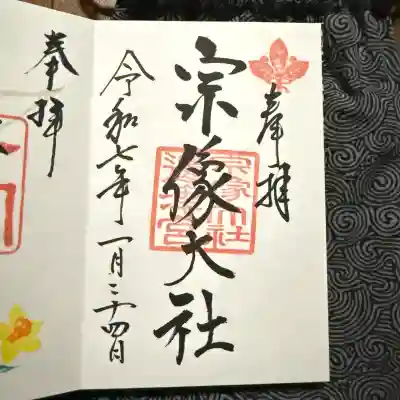 奉拝
宗像大社
宗像大社
令和七年一月二十四日
奉拝